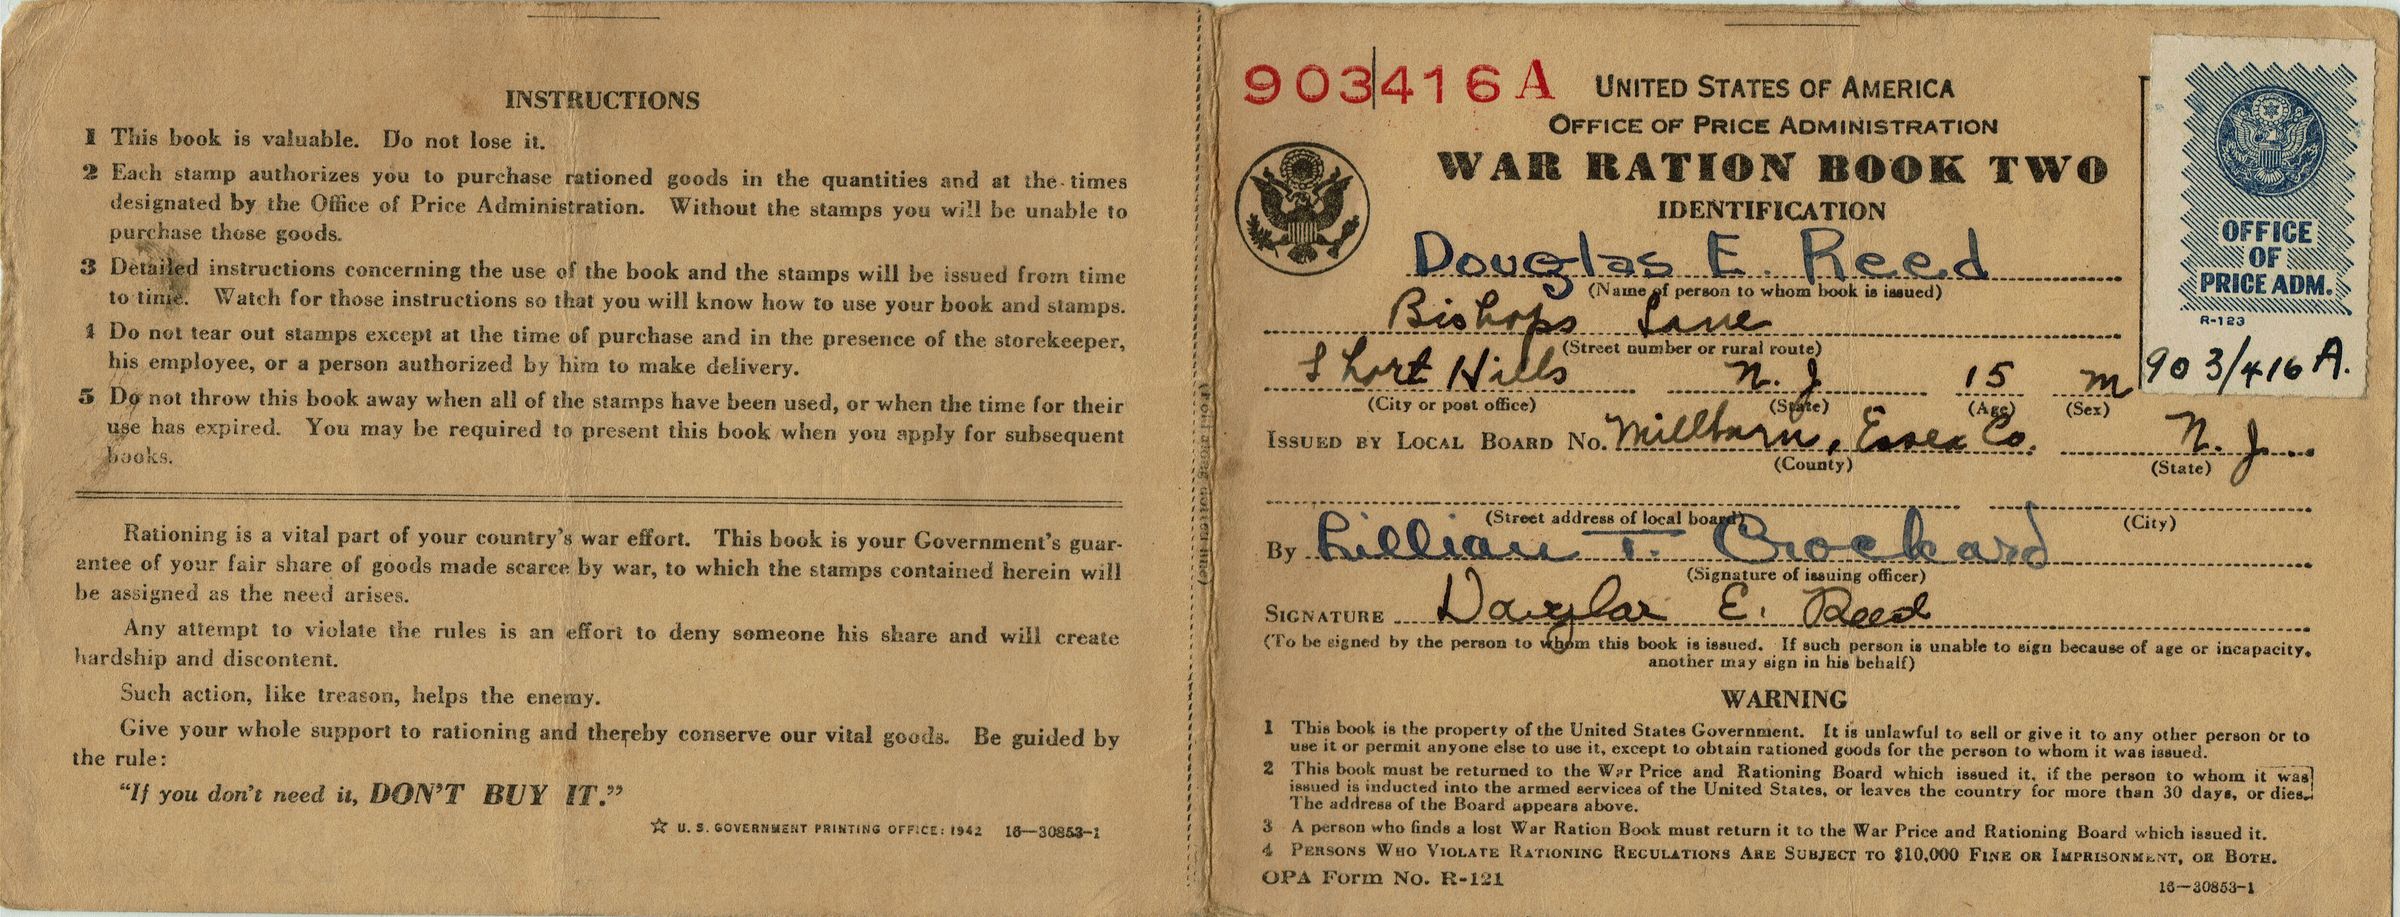 INSTRUCTIONS
1 This book is valuable. Do not lose it.
2 Each stamp authorizes you to purchase rationed goods in the quantities and at the times
designated by the Office of Price Administration. Without the stamps you will be unable to
purchase those goods.
3 Detailed instructions concerning the use of the book and the stamps will be issued from time
to time. Watch for those instructions so that you will know how to use your book and stamps.
4 Do not tear out stamps except at the time of purchase and in the presence of the storekeeper,
his employee, or a person authorized by him to make delivery.
5 Do not throw this book away when all of the stamps have been used, or when the time for their
use has expired. You may be required to present this book when you apply for subsequent
books.
Rationing is a vital part of your country's war effort. This book is your Government's guar-
antee of your fair share of goods made scarce by war, to which the stamps contained herein will
be assigned as the need arises.
Any attempt to violate the rules is an effort to deny someone his share and will create
hardship and discontent.
Such action, like treason, helps the enemy.
Give your whole support to rationing and thereby conserve our vital goods. Be guided by
the rule:
"If you don't need it, DON'T BUY IT."
☆ U. S. GOVERNMENT PRINTING OFFICE: 1942 16—30853-1
903416 A UNITED STATES OF AMERICA
OFFICE OF PRICE ADMINISTRATION
WAR RATION BOOK TWO
IDENTIFICATION
Douglas E. Reed
(Name of person to whom book is issued)
Bishops Lane
(Street number or rural route)
Short Hills N. J. 15 M
(City or post office) (State) (Age) (Sex)
ISSUED BY LOCAL BOARD NO. Millburn, Essex Co. N. J.
(County) (State)
(Street address of local board) (City)
By Lillian T. Crockard
(Signature of issuing officer)
SIGNATURE Douglas E. Reed
(To be signed by the person to whom this book is issued. If such person is unable to sign because of age or incapacity,
another may sign in his behalf)
WARNING
1 This book is the property of the United States Government. It is unlawful to sell or give it to any other person or to
use it or permit anyone else to use it, except to obtain rationed goods for the person to whom it was issued.
2 This book must be returned to the War Price and Rationing Board which issued it, if the person to whom it was
issued is inducted into the armed services of the United States, or leaves the country for more than 30 days, or dies.
The address of the Board appears above.
3 A person who finds a lost War Ration Book must return it to the War Price and Rationing Board which issued it.
4 PERSONS WHO VIOLATE RATIONING REGULATIONS ARE SUBJECT TO $10,000 FINE OR IMPRISONMENT, OR BOTH.
OPA Form No. R-121
16—30853-1
OFFICE
OF
PRICE ADM.
R-123
903/416 A.